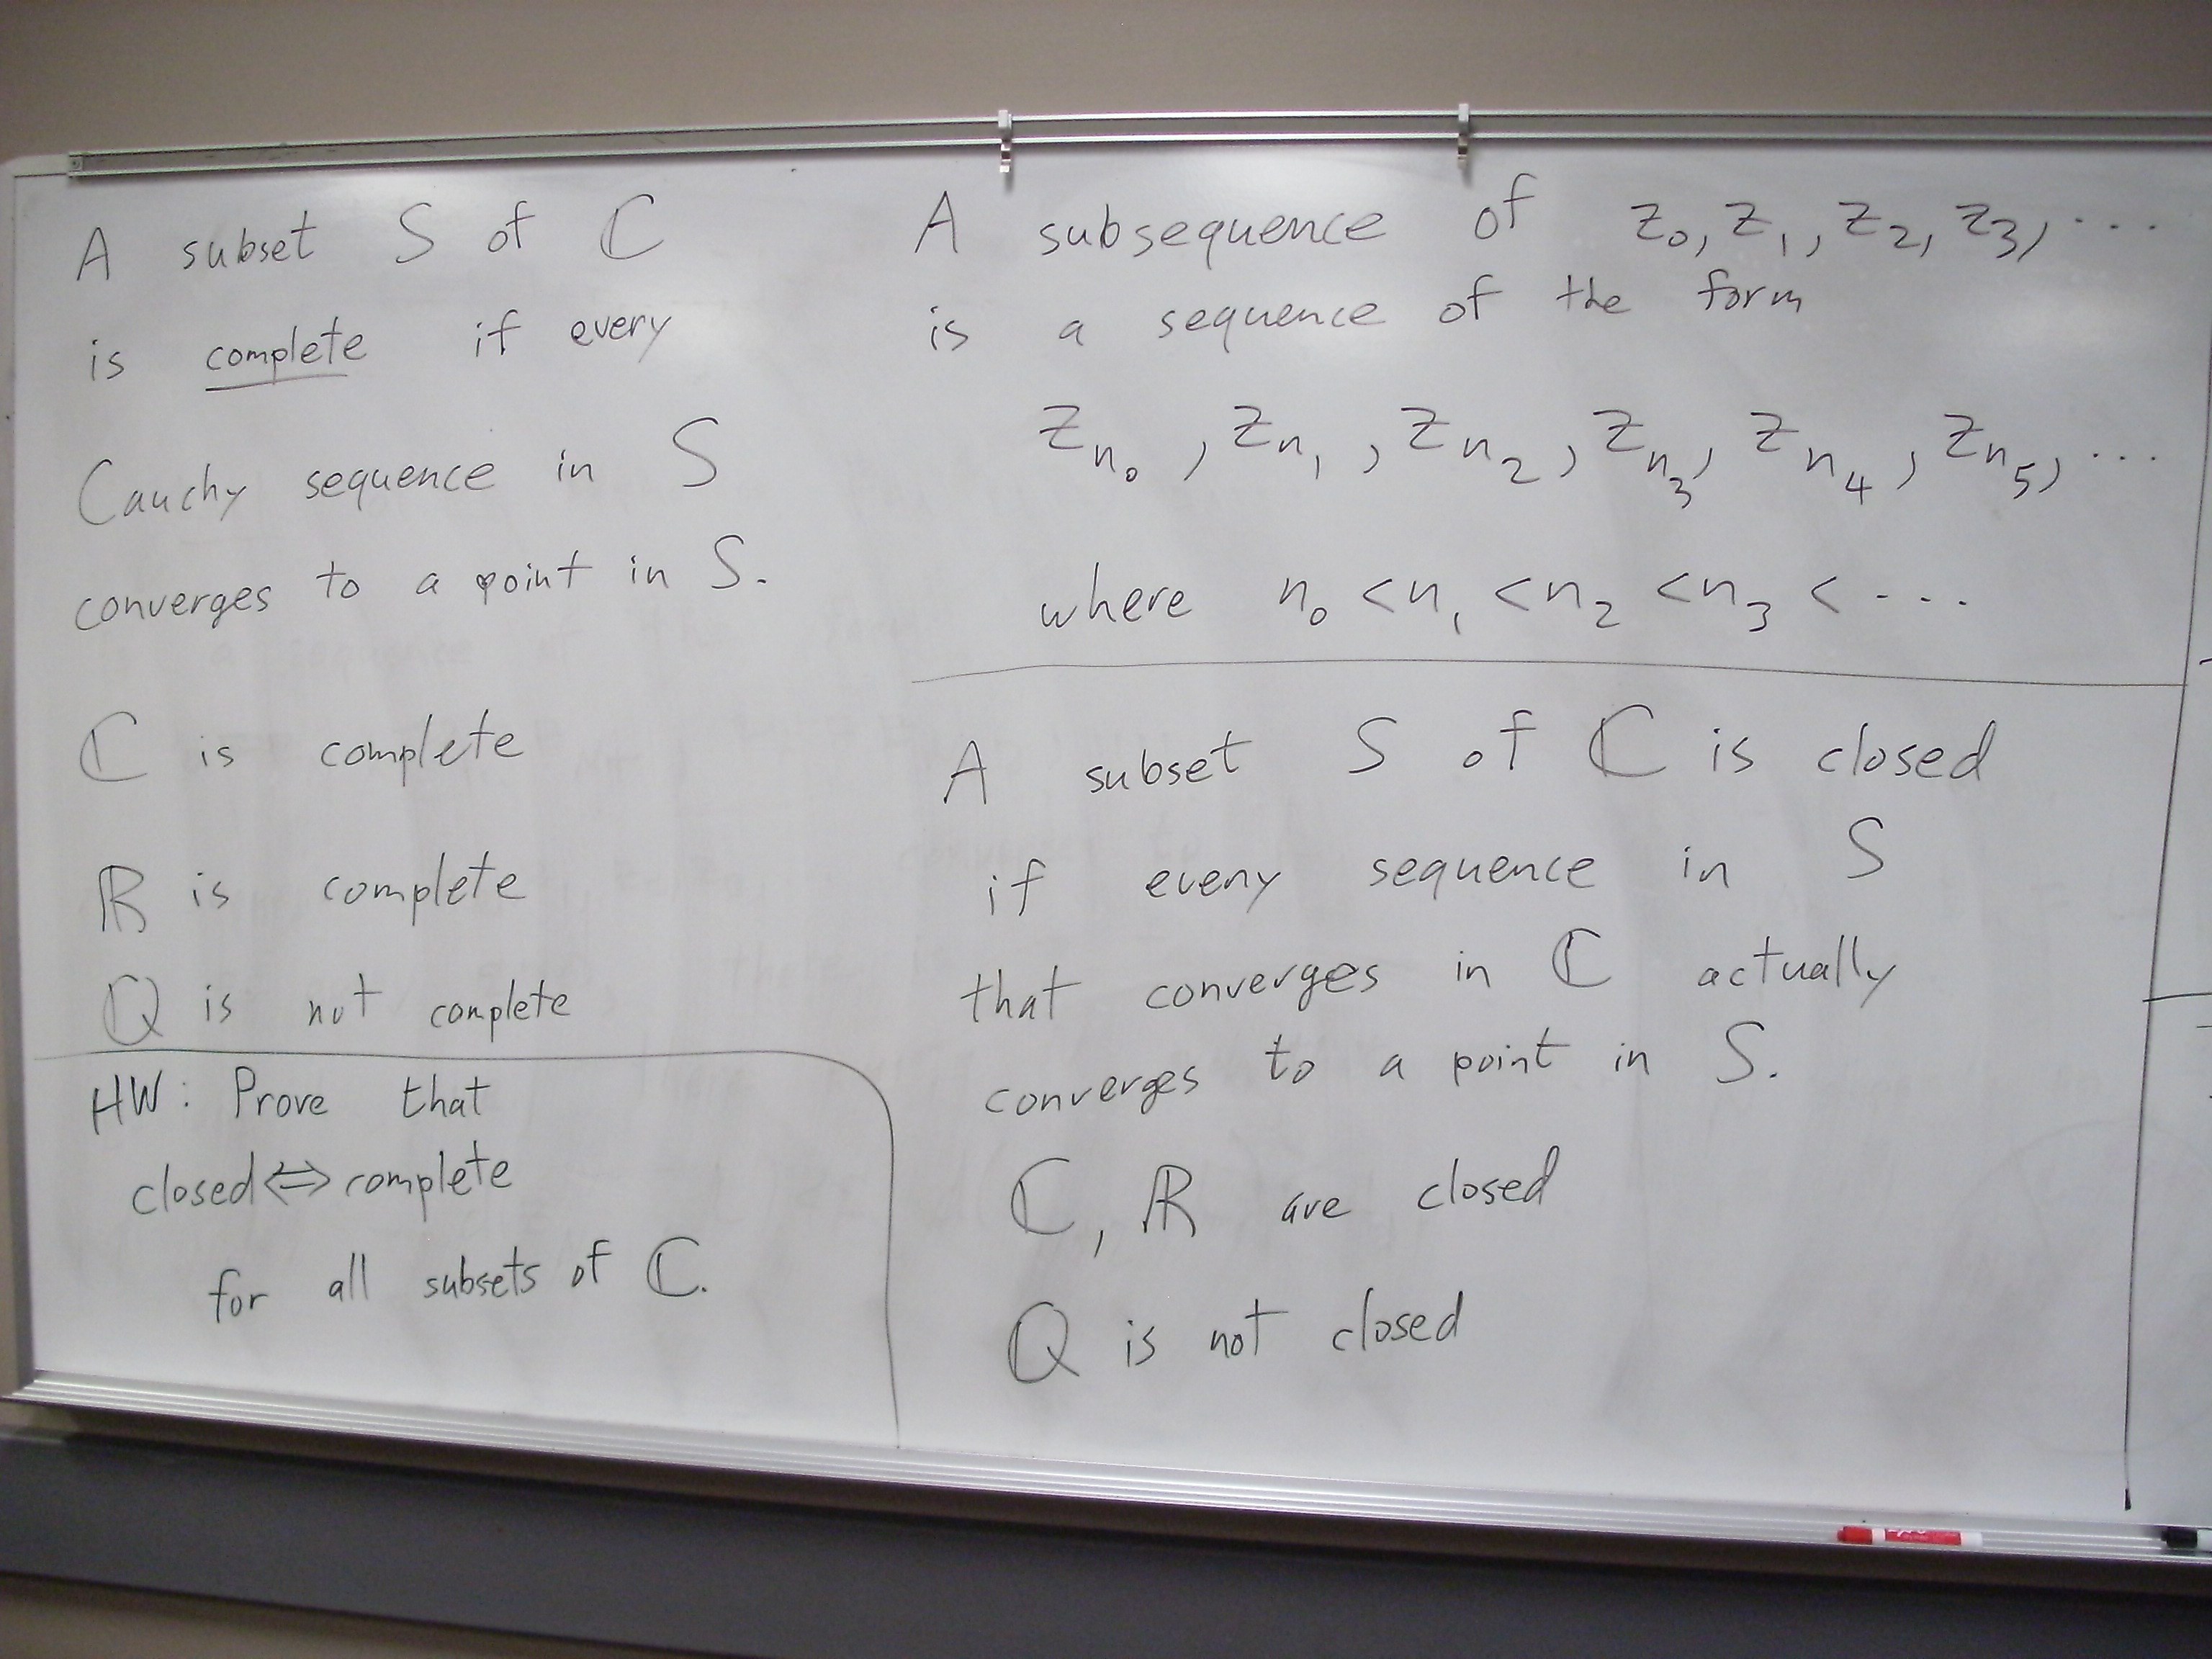 A subset S of ℂ
is complete if every
Cauchy sequence in S
converges to a point in S.
ℂ is complete
ℝ is complete
ℚ is not complete
HW: Prove that
closed ⇔ complete
for all subsets of ℂ.
A subsequence of z₀, z₁, z₂, z₃, ...
is a sequence of the form
z_{n₀}, z_{n₁}, z_{n₂}, z_{n₃}, z_{n₄}, z_{n₅}, ...
where n₀ < n₁ < n₂ < n₃ < ...
A subset S of ℂ is closed
if every sequence in S
that converges in ℂ actually
converges to a point in S.
ℂ, ℝ are closed
ℚ is not closed